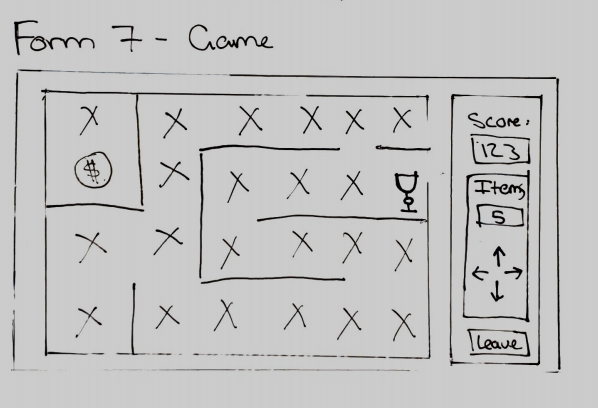 Form 7 - Game
X X X X X X
$ X X X X
X X X X X X
X X X X X X
Score:
123
Items
5
Leave